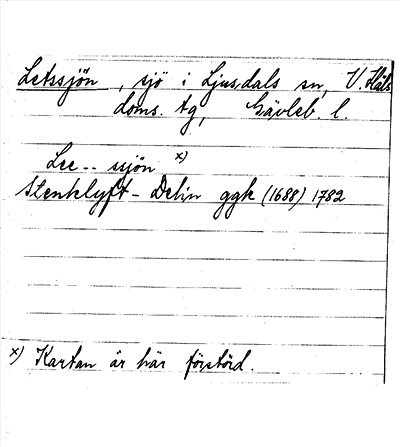 Letssjön, sjö i Ljusdals sn, V. Häls
doms. tg, Gävleb. l.
Lee -- ssjön x)
Stenklyft - Delin ggk (1688) 1782
x) Kartan är här förstörd.